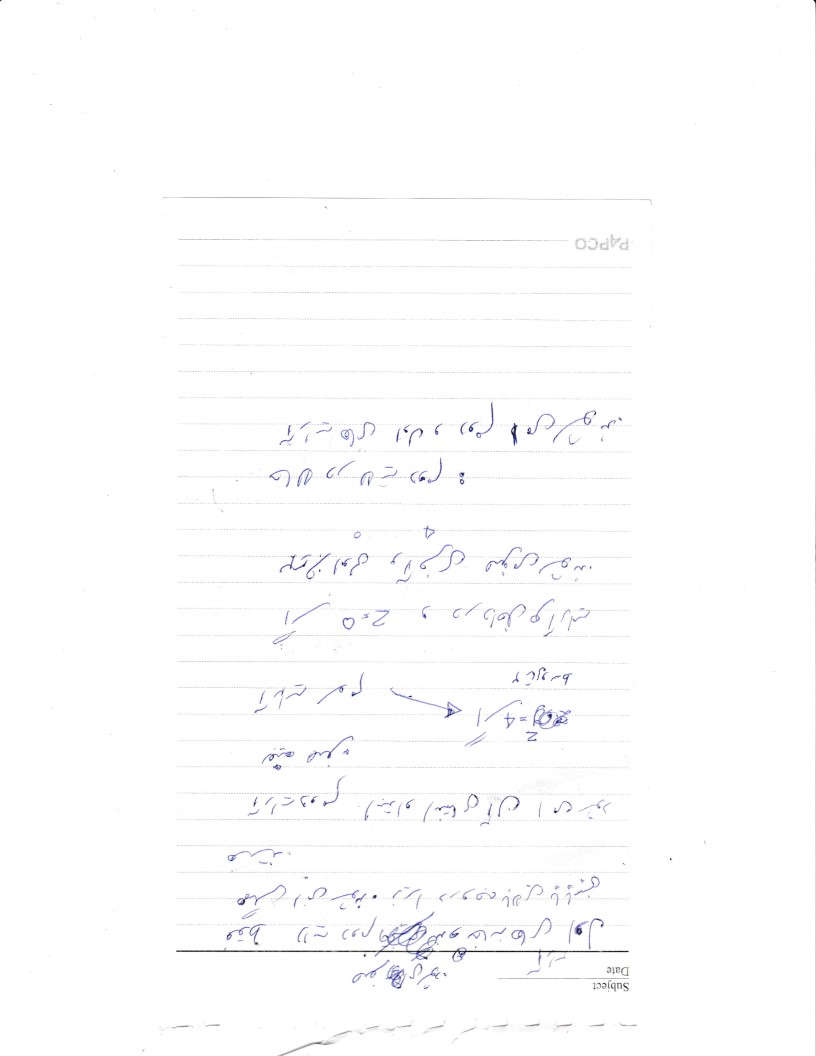 Subject
Date
صفر می شود.
آرایه
فقط لایه دوم و خانه های اول
همگی ۱ می شوند. زیرا در وجه بالایی یا پایینی
هستند.
آرایه دوم ابتدا و انتهای آن ۱ می شود
بقیه صفر
اگر z=4
آرایه سوم
۲ تا وسط
اگر z=0 و در داخل هر آرایه
بجز اولی و آخری صفر می شوند.
4 0
حالا در لایه دوم :
آرایه های اول و دوم ۱ می شوند.
PAPCO